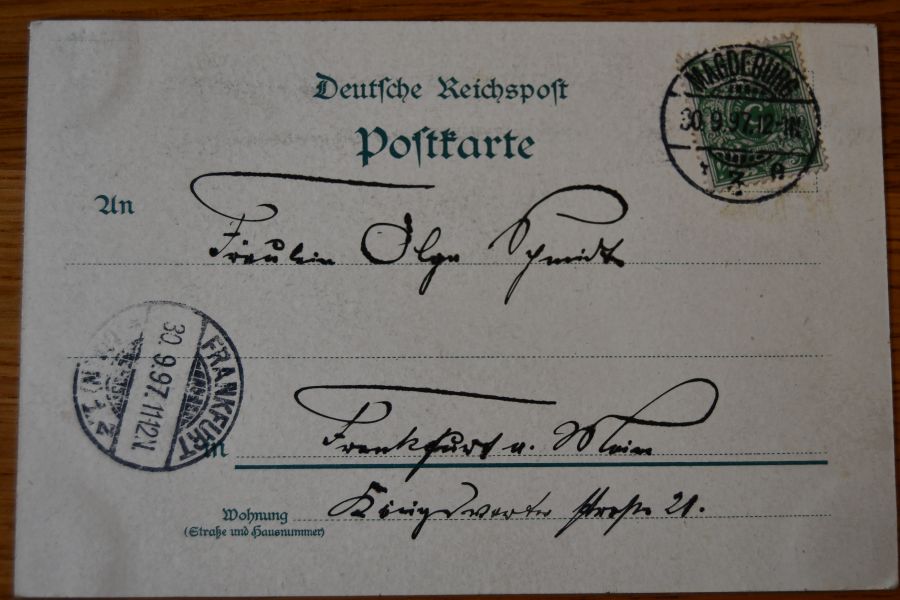 Deutsche Reichspost
Postkarte
MAGDEBURG
30.9.97.12-1N.
An
Fräulein Olga Schmidt
FRANKFURT
30.9.97.11-12N.
In
Frankfurt a. Main
Wohnung
(Straße und Hausnummer)
Königswarter Straße 21.